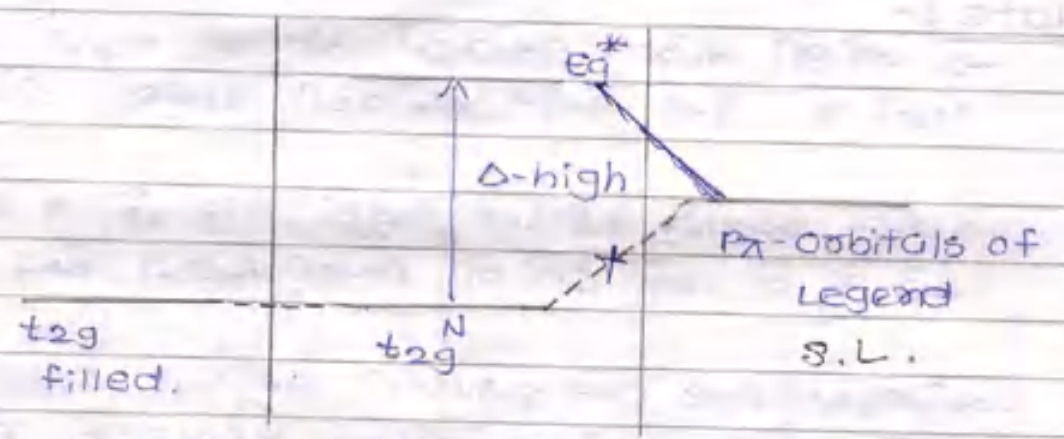 Eg*
Δ-high
Pπ-orbitals of
Legend
S.L.
t2g
filled.
t2g N